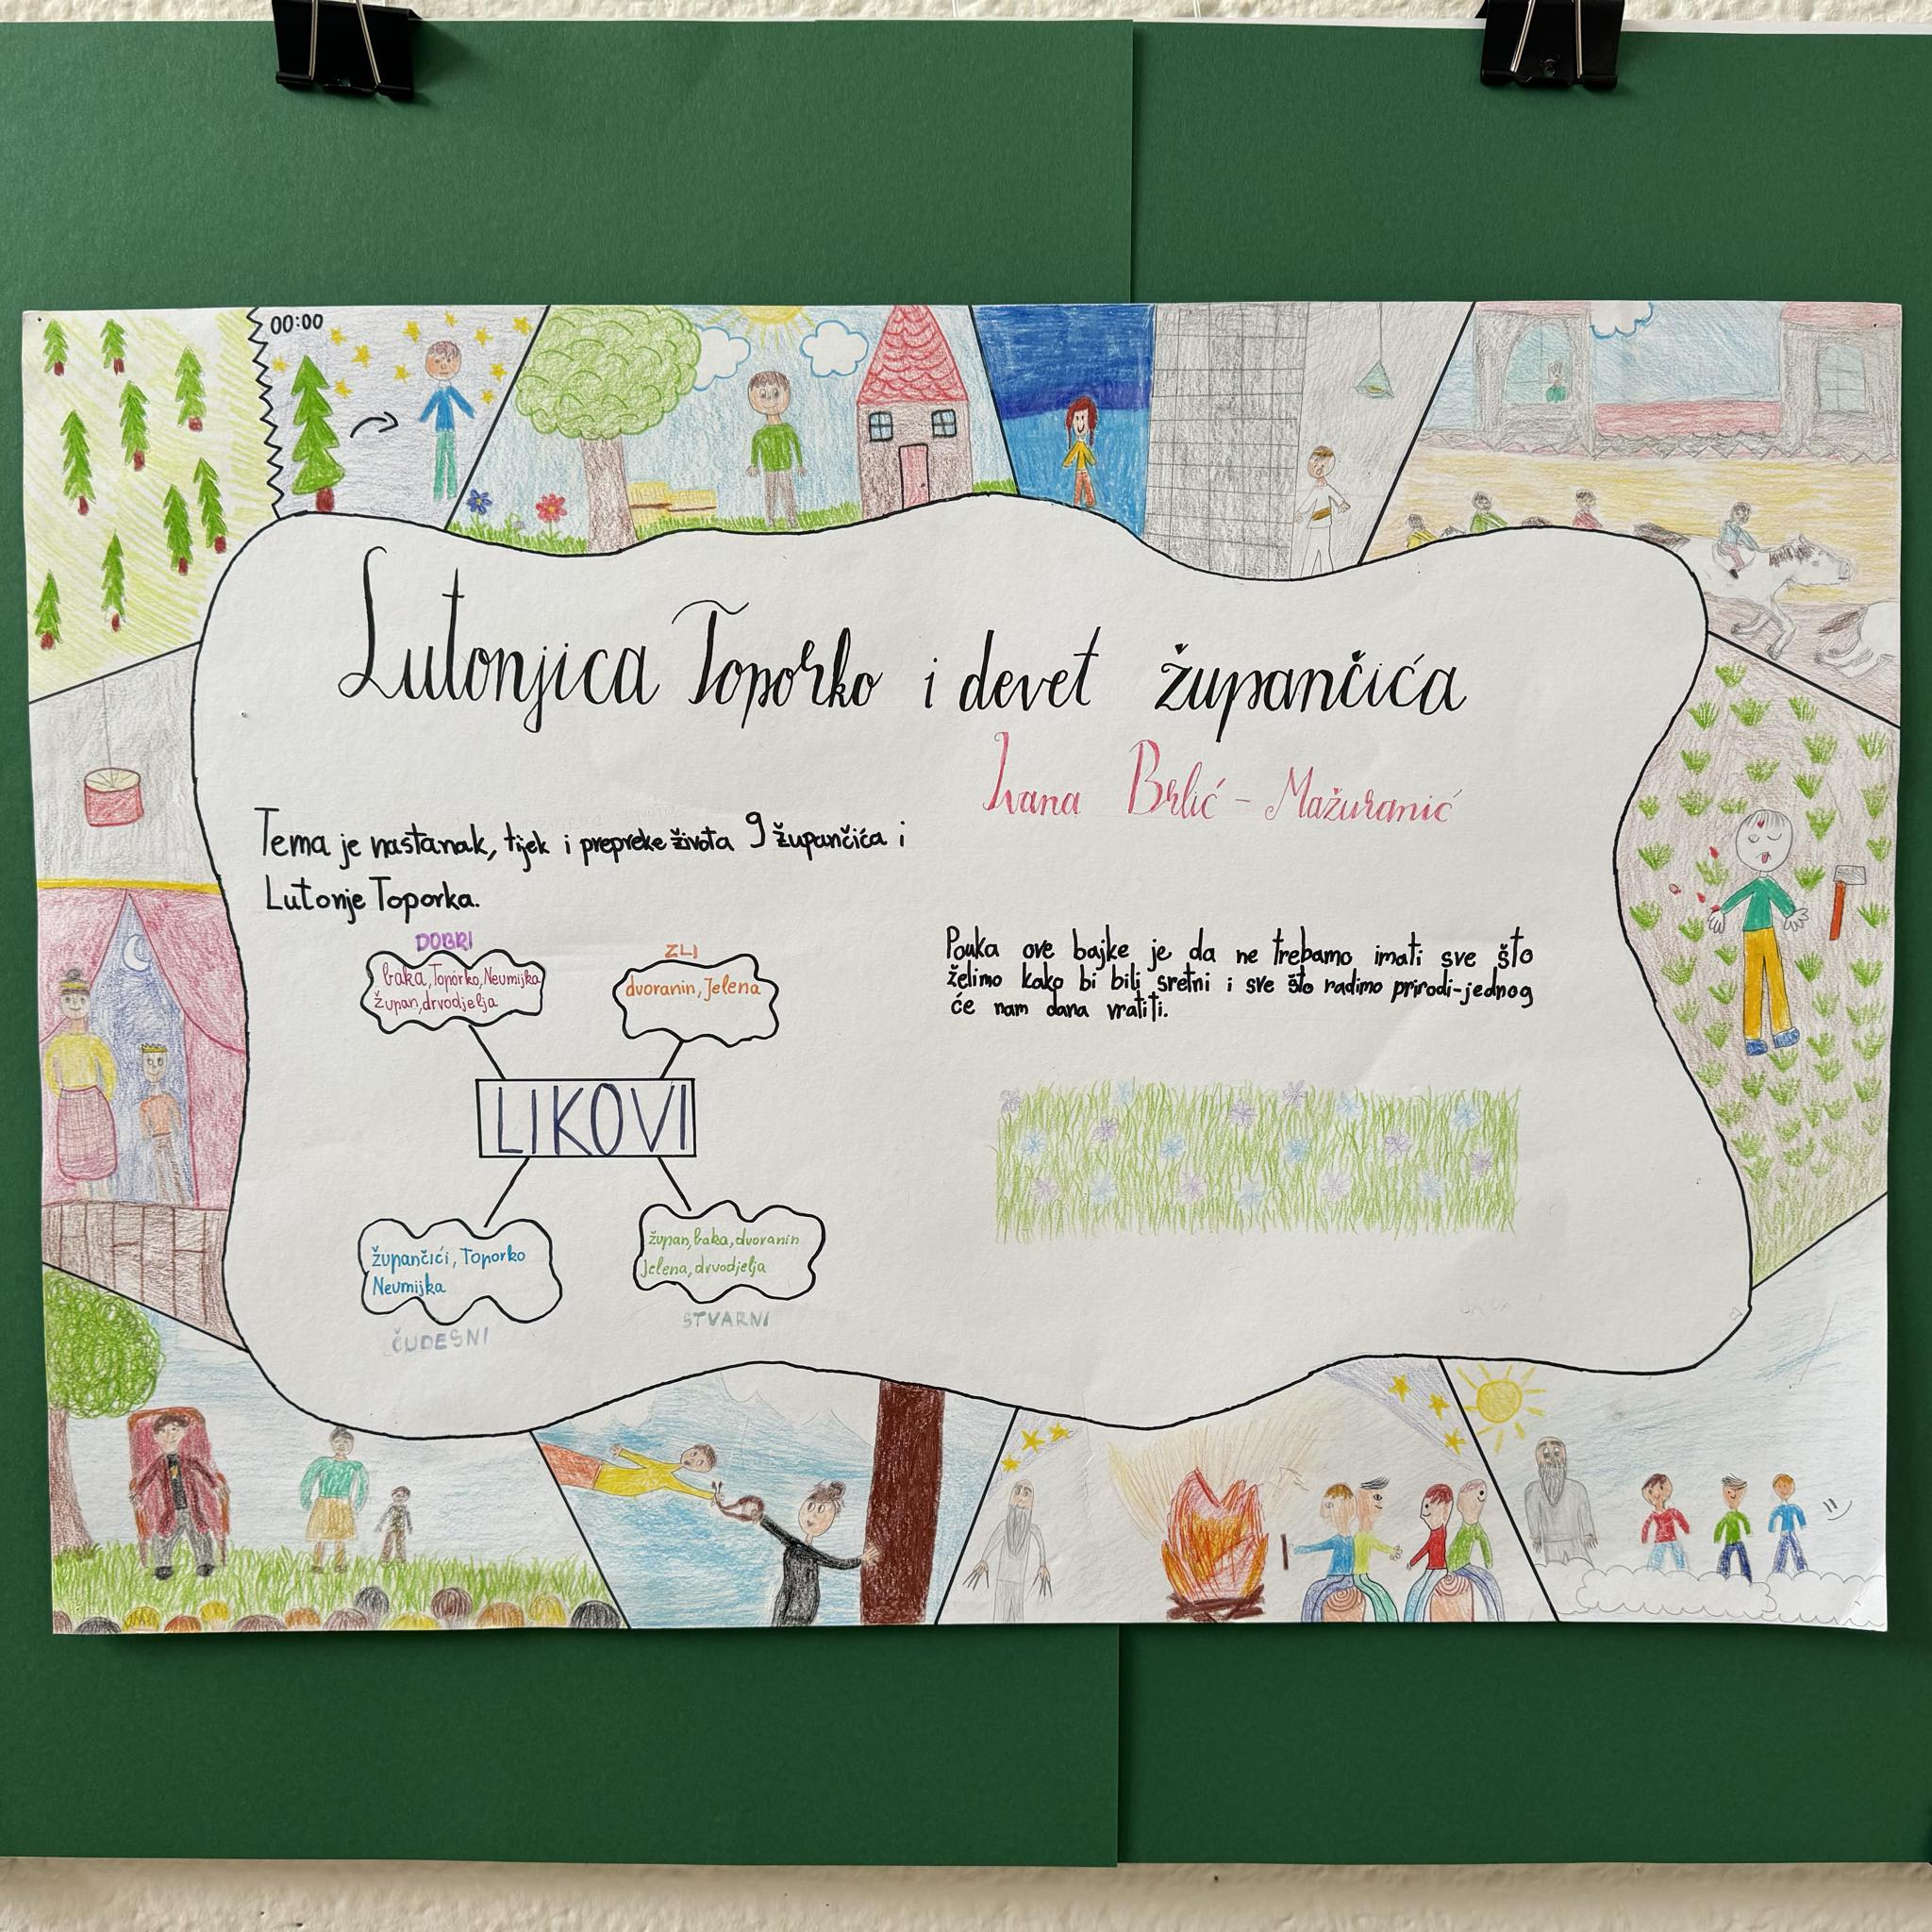 00:00
Lutonjica Toporko i devet župančića
Ivana Brlić - Mažuranić
Tema je nastanak, tijek i prepreke života 9 župančića i
Lutonje Toporka.
DOBRI
baka, Toporko, Neumijka
župan, drvodjelja
ZLI
dvoranin, Jelena
LIKOVI
župančići, Toporko
Neumijka
ČUDESNI
župan, baka, dvoranin
Jelena, drvodjelja
STVARNI
Pouka ove bajke je da ne trebamo imati sve što
želimo kako bi bili sretni i sve što radimo prirodi-jednog
će nam dana vratiti.